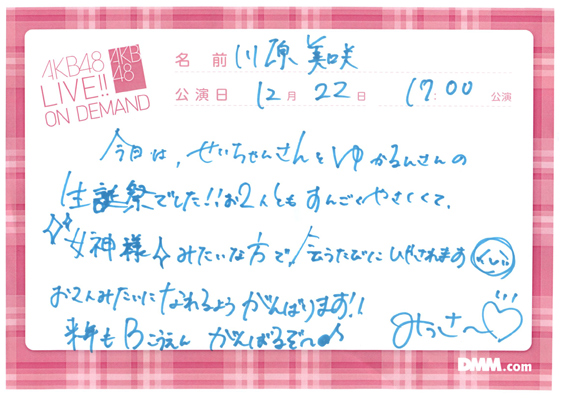 AKB48
LIVE!!
ON DEMAND
AKB
48
名前 川原 美咲
公演日 12月22日 17:00 公演
今日は、せいちゃんさんとゆかるんさんの
生誕祭でした!!お2人ともすんごくやさしくて、
女神様みたいな方で会うたびにひやされます
お2人みたいになれるようがんばります!!
来年もBこうえん がんばるぞ〜♪
みっさ〜♡
DMM.com